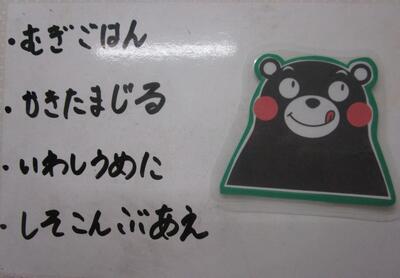 ・むぎごはん
・かきたまじる
・いわしうめに
・しそこんぶあえ